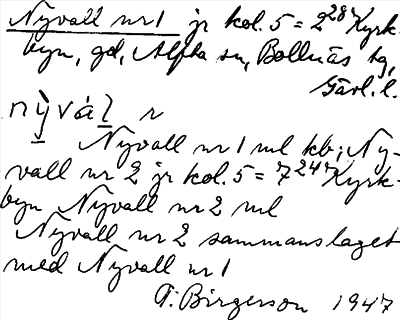 Nyvall nr 1 jr kol. 5 = 2²⁸ Kyrk-
byn, gd, Alfta sn, Bollnäs tg,
Gävl. l.
nỳvál r
Nyvall nr 1 ml kb; Ny-
vall nr 2 jr kol. 5 = 7²⁴ Kyrk-
byn Nyvall nr 2 ml
Nyvall nr 2 sammanslaget
med Nyvall nr 1
G. Birgerson 1947